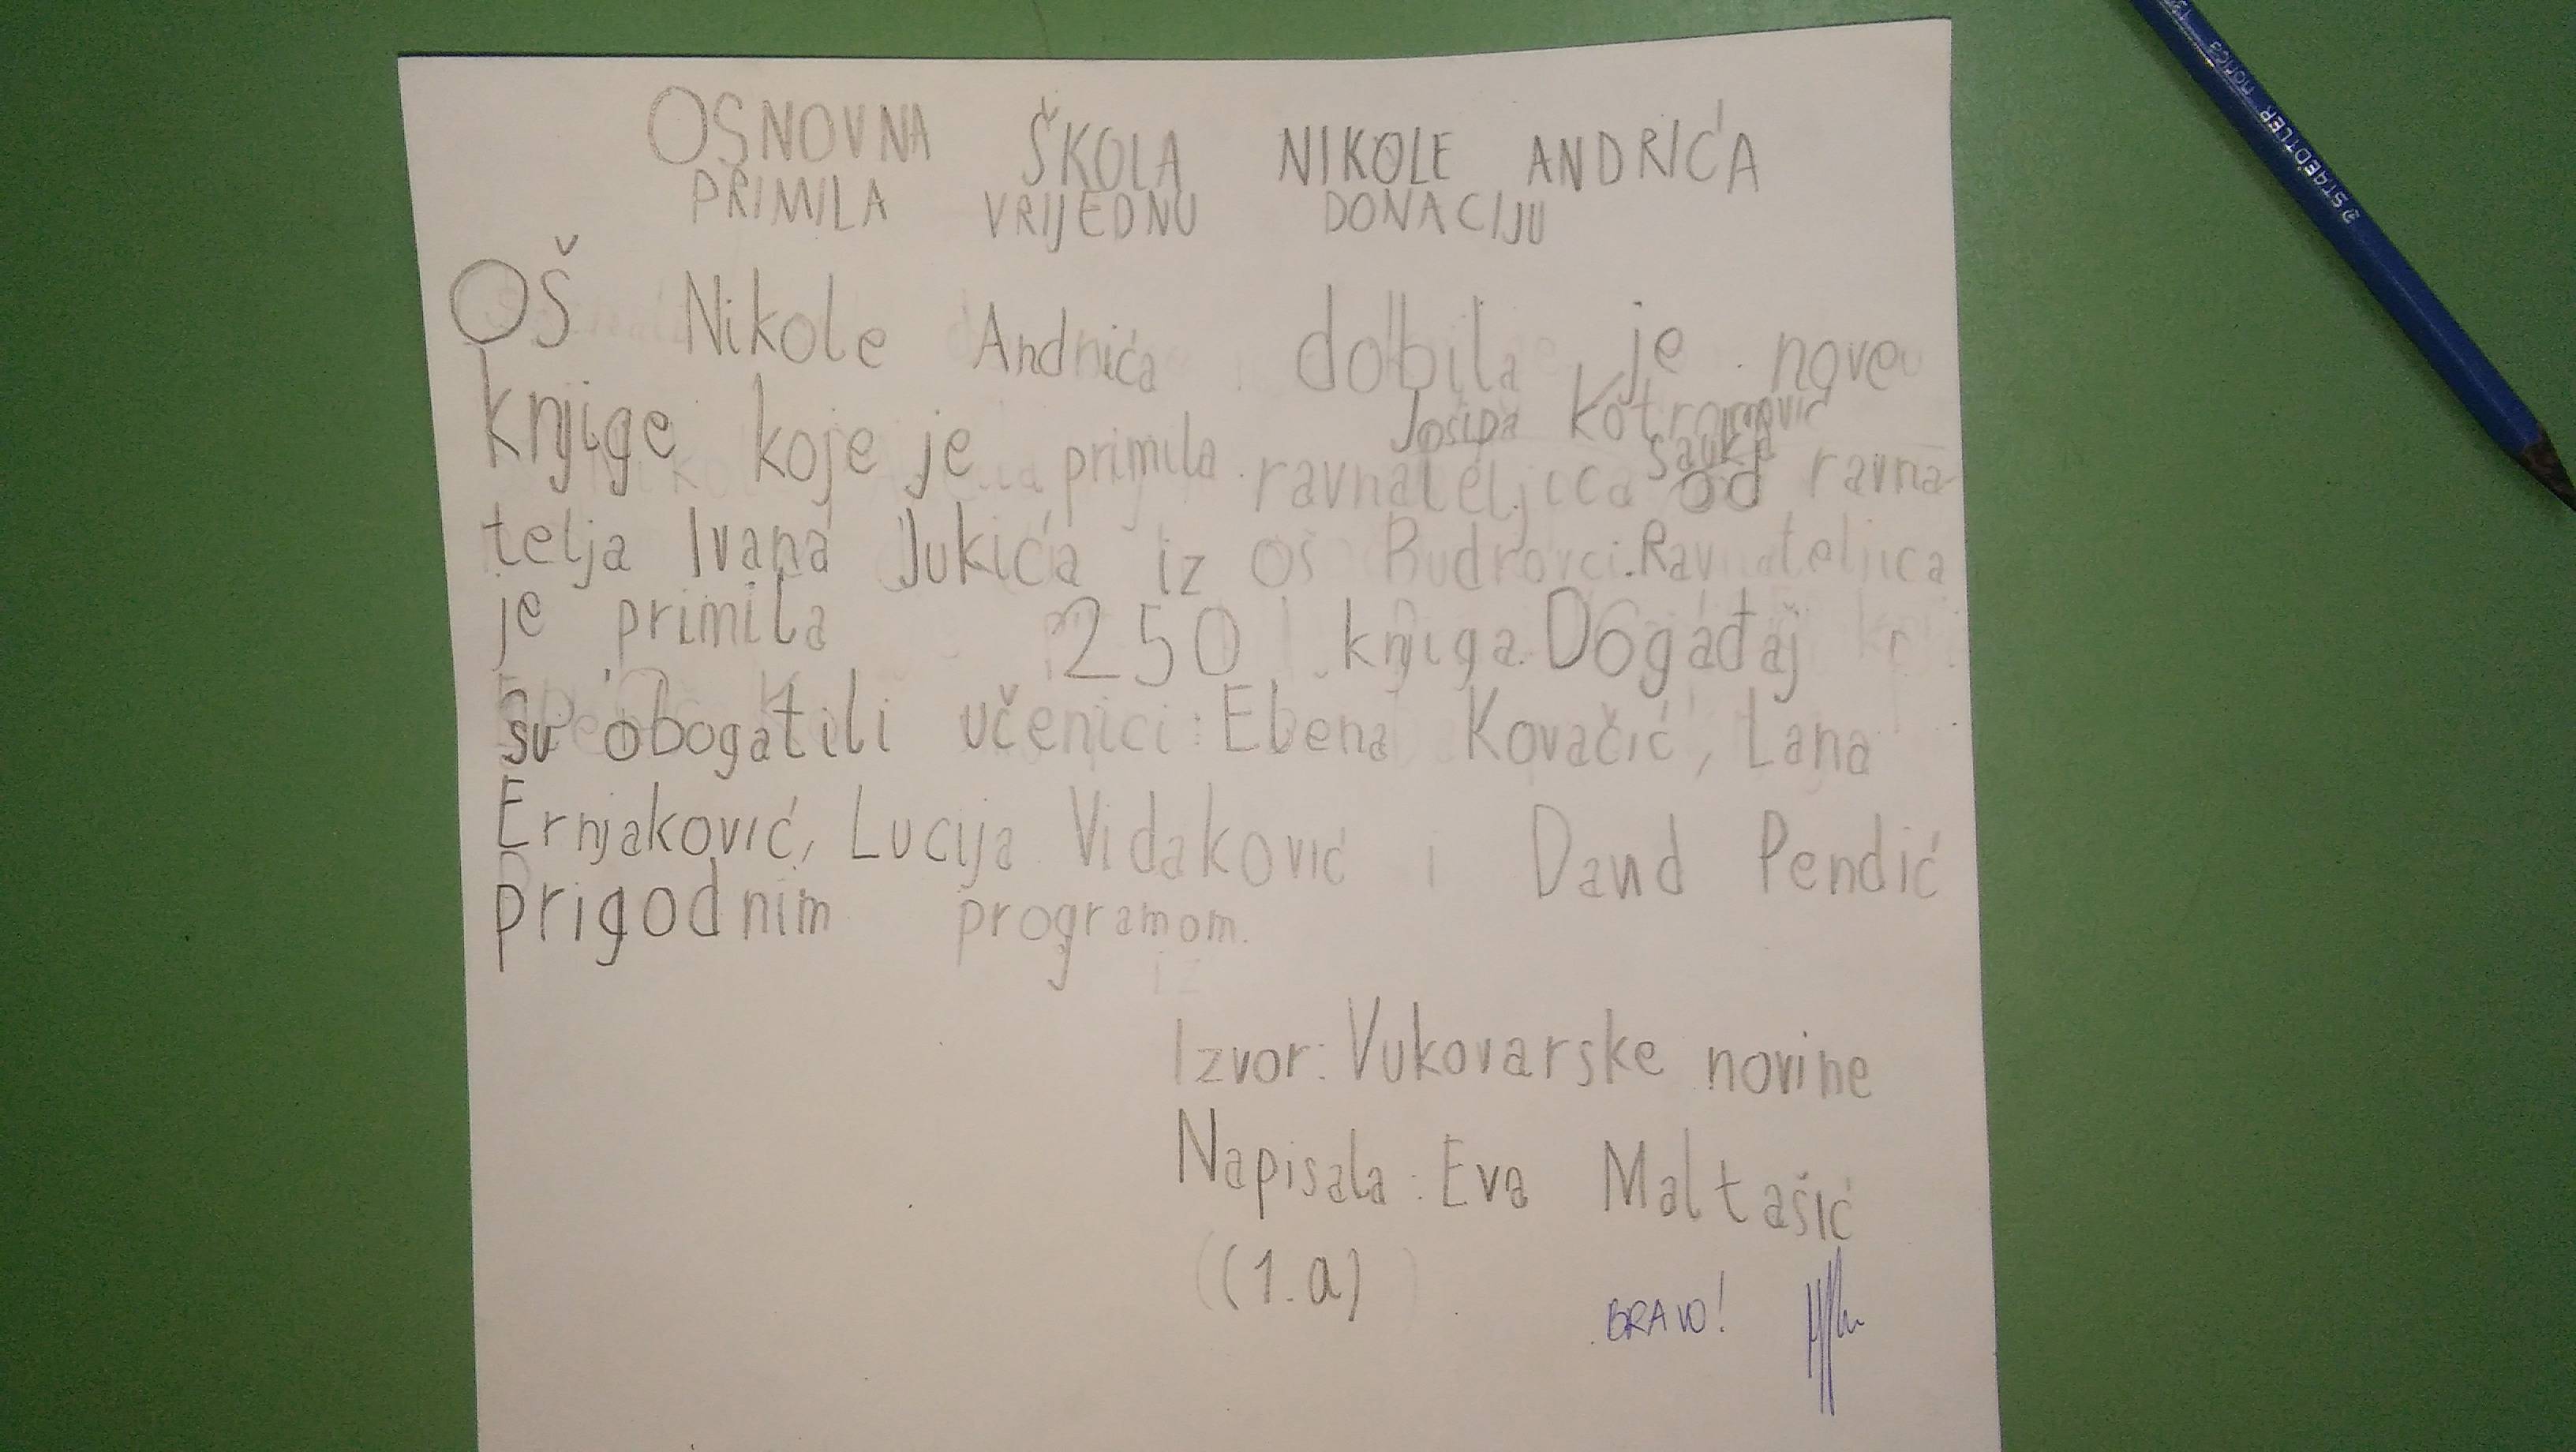 OSNOVNA ŠKOLA NIKOLE ANDRIĆA
PRIMILA VRIJEDNU DONACIJU
OŠ Nikole Andrića dobila je nove
knjige koje je primila ravnateljica Josipa Kotromanović Savka od ravna-
telja Ivana Jukića iz OŠ Budrovci. Ravnateljica
je primila 250 knjiga. Događaj
su obogatili učenici: Elena Kovačić, Lana
Ernjaković, Lucija Vidaković i David Pendić
prigodnim programom.
Izvor: Vukovarske novine
Napisala: Eva Maltašić
(1.a)
BRAVO!
STAEDTLER